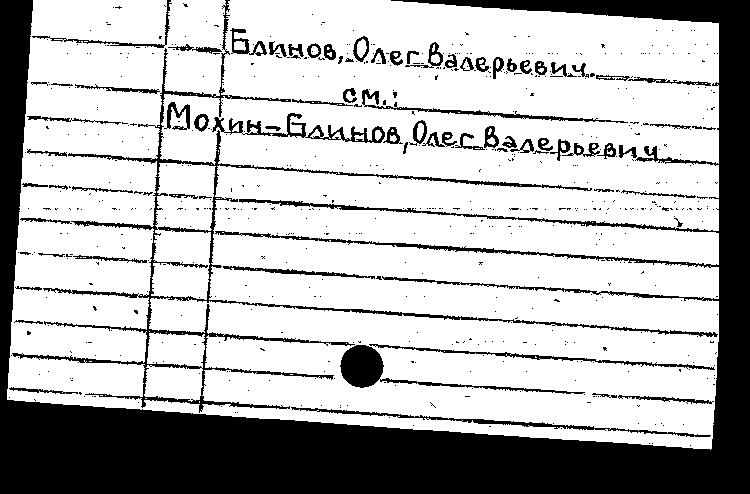 Блинов, Олег Валерьевич
см.:
Мохин-Блинов, Олег Валерьевич